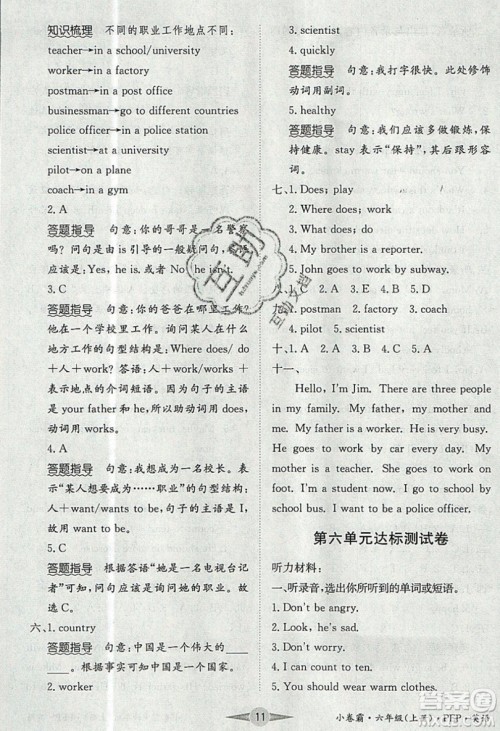 知识梳理 不同的职业工作地点不同;
teacher→in a school/university
worker→in a factory
postman→in a post office
businessman→go to different countries
police officer→in a police station
scientist→in a university
pilot→on a plane
coach→in a gym
2. A
答题指导 句意:你的哥哥是一名警察
吗?问句是由is引导的一般疑问句,回答
应该是:Yes, he is.或No, he isn't.
3. C
答题指导 句意:你的爸爸在哪里工作?他
在一个学校里工作。询问某人在什么
地方工作的句型结构是:Where does/ do
+人+work? 答语:人+work/ works+
表示地点的介词短语。句子的主语是
your father和he,所以助动词用
does,动词用works。
4. A
答题指导 句意:我想成为一名校长。表
示“某人想要成为……职业”的句型结构
是:人+want/ wants to be+职业。句子
的主语是I,故用want to be。
5. C
答题指导 根据答语“她是一名电视台记
者”可知,问句应该是询问她的职业。故
选C
六、1. country
答题指导 句意:中国是一个伟大的
____。根据事实可知中国是一个国家。
2. worker
3. scientist
4. quickly
答题指导 句意:我打字很快。此处修饰
动词用副词。
5. healthy
答题指导 句意:我们应该多做锻炼,保
持健康。stay 表示“保持”,其后跟形容
词。
七、1. Does; play
2. Where does; work
3. What does; do
4. My brother is a reporter.
5. John goes to work by subway.
八、1. C
九、1. postman 2. factory 3. coach
4. pilot 5. scientist
十、
十一、
Hello, I'm Jim. There are three
people in my family. My father, my mother
and me. My father is a worker. He
goes to work by car every day. My
mother is a teacher. She works in a
school. I am a student. I go to school by
bus. I want to be a police officer.
第六单元达标测试卷
听力材料:
一、听录音,选出你所听到的单词或短语。
1. Don't be angry.
2. I'm cold and ill.
3. I can count to ten.
4. Don't be afraid.
11
小卷霸·六年级(上册)·PEP·英语